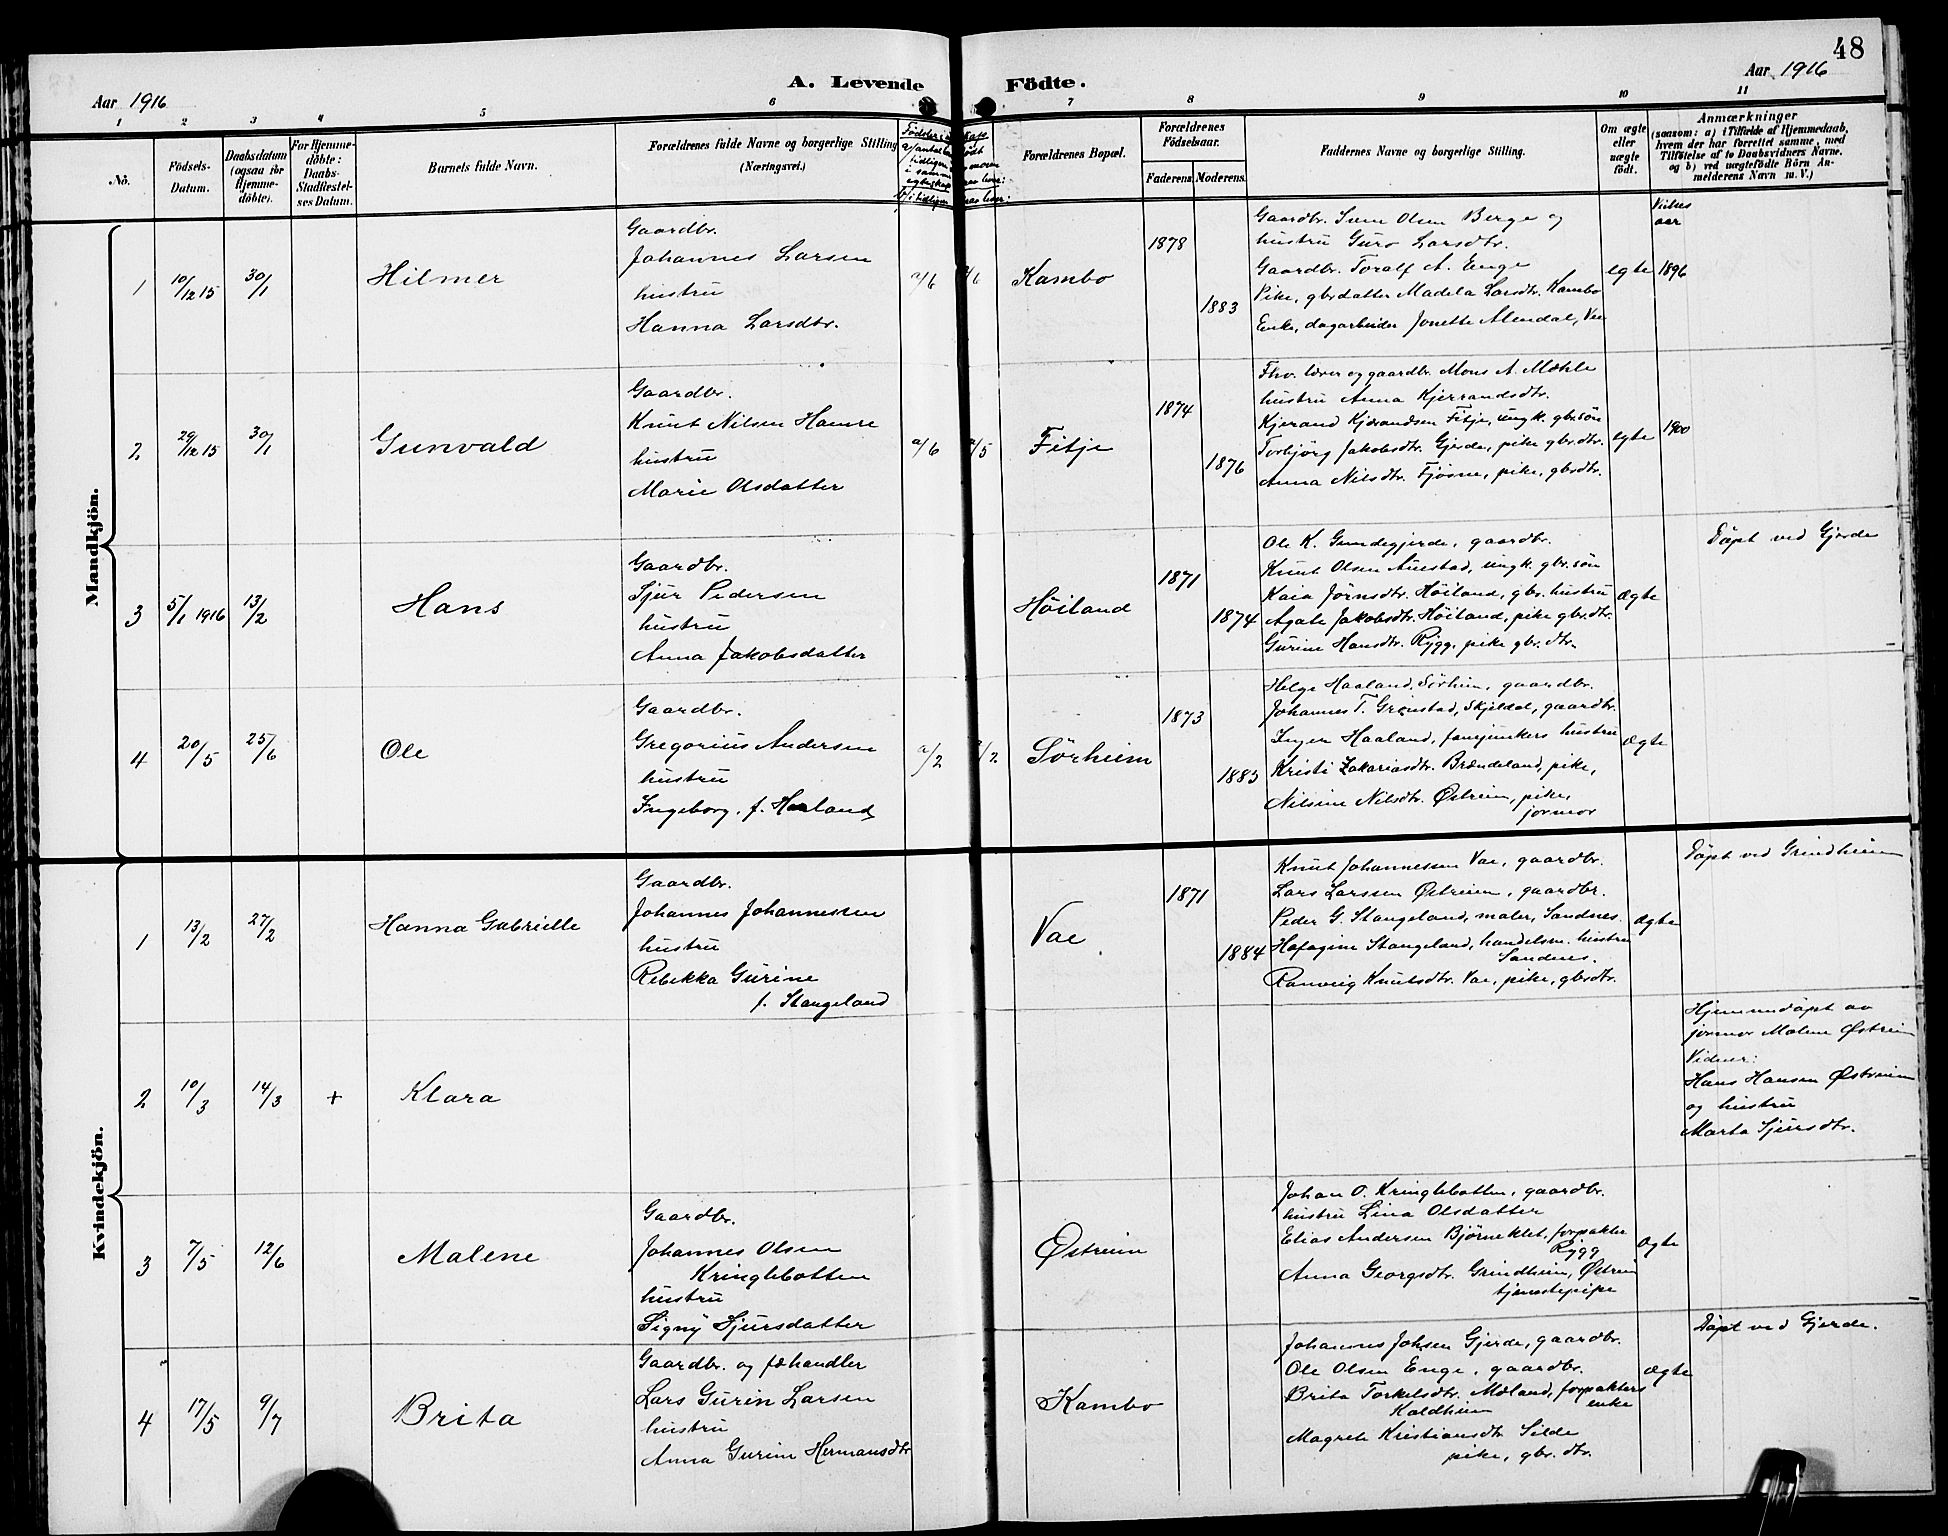 48
A. Levende Födte.
Aar 1916
Aar 1916
1 2 3 4 5 6 7 8 9 10 11
No.
Födsels-Datum.
Daabsdatum (ogsaa for Hjemmedöbte).
For Hjemmedöbte: Daabs-Stadfæstelses Datum.
Barnets fulde Navn.
Forældrenes fulde Navne og borgerlige Stilling (Næringsvei.)
Forældrenes Bopæl.
Forældrenes Födselsaar.
Faderens. Moderens.
Faddernes Navne og borgerlige Stilling.
Om ægte eller uægte födt.
Anmærkninger
(saasom: a) i Tilfælde af Hjemmedaab, hvem der har forrettet samme, med Tilföielse af to Daabsvidners Navne. og b) ved uægtefödte Börn Anmelderens Navn m. V.)
Mandkjön.
1
10/12 15
30/1
Hilmer
Gaardbr.
Johannes Larsen
hustru
Hanna Larsdtr.
a/6
Kambo
1878
1883
Gaardbr. Sven Olsen Berge og
hustru Guro Larsdtr.
Gaardbr. Toralf A. Enge
Pike, gbrdatter Madela Larsdtr. Kambo
Enke, dagarbeider Jonette Alendal, Vae
egte
Vielses
aar
1896
2
29/12 15
30/1
Gunvald
Gaardbr.
Knut Nilsen Hamre
hustru
Marie Olsdatter
a/6
a/5
Fitje
1874
1876
Fhv. lærer og gaardbr. Mons A. Mæhle
hustru Anna Kjerrandsdtr.
Kjerand Kjerandsen Fitje, ungk. gbr.sön
Torbjörg Jakobsdtr. Gjerde, pike gbr.dtr.
Anna Nilsdtr. Fjösne, pike, gbr.dtr.
egte
1900
3
5/1 1916
13/2
Hans
Gaardbr.
Sjur Pedersen
hustru
Anna Jakobsdatter
Höiland
1871
1874
Ole K. Gundegjerde, gaardbr.
Knut Olsen Austad, ungk. gbr.sön
Kaia Jörnsdtr. Höiland, gbr. hustru
Agate Jakobsdtr. Höiland, pike gbr.dtr.
Gurine Hansdtr. Rygg, pike gbr. dtr.
ægte
Döpt ved Gjerde
4
20/5
25/6
Ole
Gaardbr.
Gregorius Andersen
hustru
Ingeborg, f. Haaland
a/2
Sörheim
1873
1883
Helge Haaland, Sörheim, gaardbr.
Johannes T. Grönstad, Skjeldal, gaardbr.
Inger Haaland, fanejunkers hustru
Kristi Zakariasdtr. Brændeland, pike,
Nilsine Nilsdtr. Østreim, pike,
jormor
ægte
Kvindekjön.
1
13/2
27/2
Hanna Gabrielle
Gaardbr.
Johannes Johannessen
hustru
Rebekka Gurine
f. Stangeland
Vae
1871
1884
Knut Johannessen Vae, gaardbr.
Lars Larssen Østreim, gaardbr.
Peder G. Stangeland, maler, Sandnes.
Stangeland, handelsm. hustru
Sandnes.
Ranveig Knutsdtr. Vae, pike, gbr.dtr.
ægte
Döpt ved Grindheim
2
10/3
14/3
+
Klara
Hjemmedöpt av
jormor Malene Østreim
Vidner:
Hans Hansen Østreim
og hustru
Marta Sjursdtr.
3
7/5
12/6
Malene
Gaardbr.
Johannes Olsen
Kringlebotten
hustru
Signy Sjursdatter
Østreim
Johan O. Kringlebotten, gaardbr.
hustru Lina Olsdatter
Elias Andersen Björneklet, forpakter
Rygg
Anna Georgsdtr. Grindheim, Østreim
tjenestepike
ægte
4
17/5
9/7
Brita
Gaardbr. og fæhandler
Lars Gurin Larsen
hustru
Anna Gurine Hermansdtr
Kambo
Johannes Johsen Gjerde, gaardbr.
Ole Olsen Enge, gaardbr.
Brita Torkelsdtr. Mæland, forpakters
Haldheim enke
Magrete Kristiansdtr Silde
pike, gbr. dtr.
ægte
Döpt ved Gjerde.